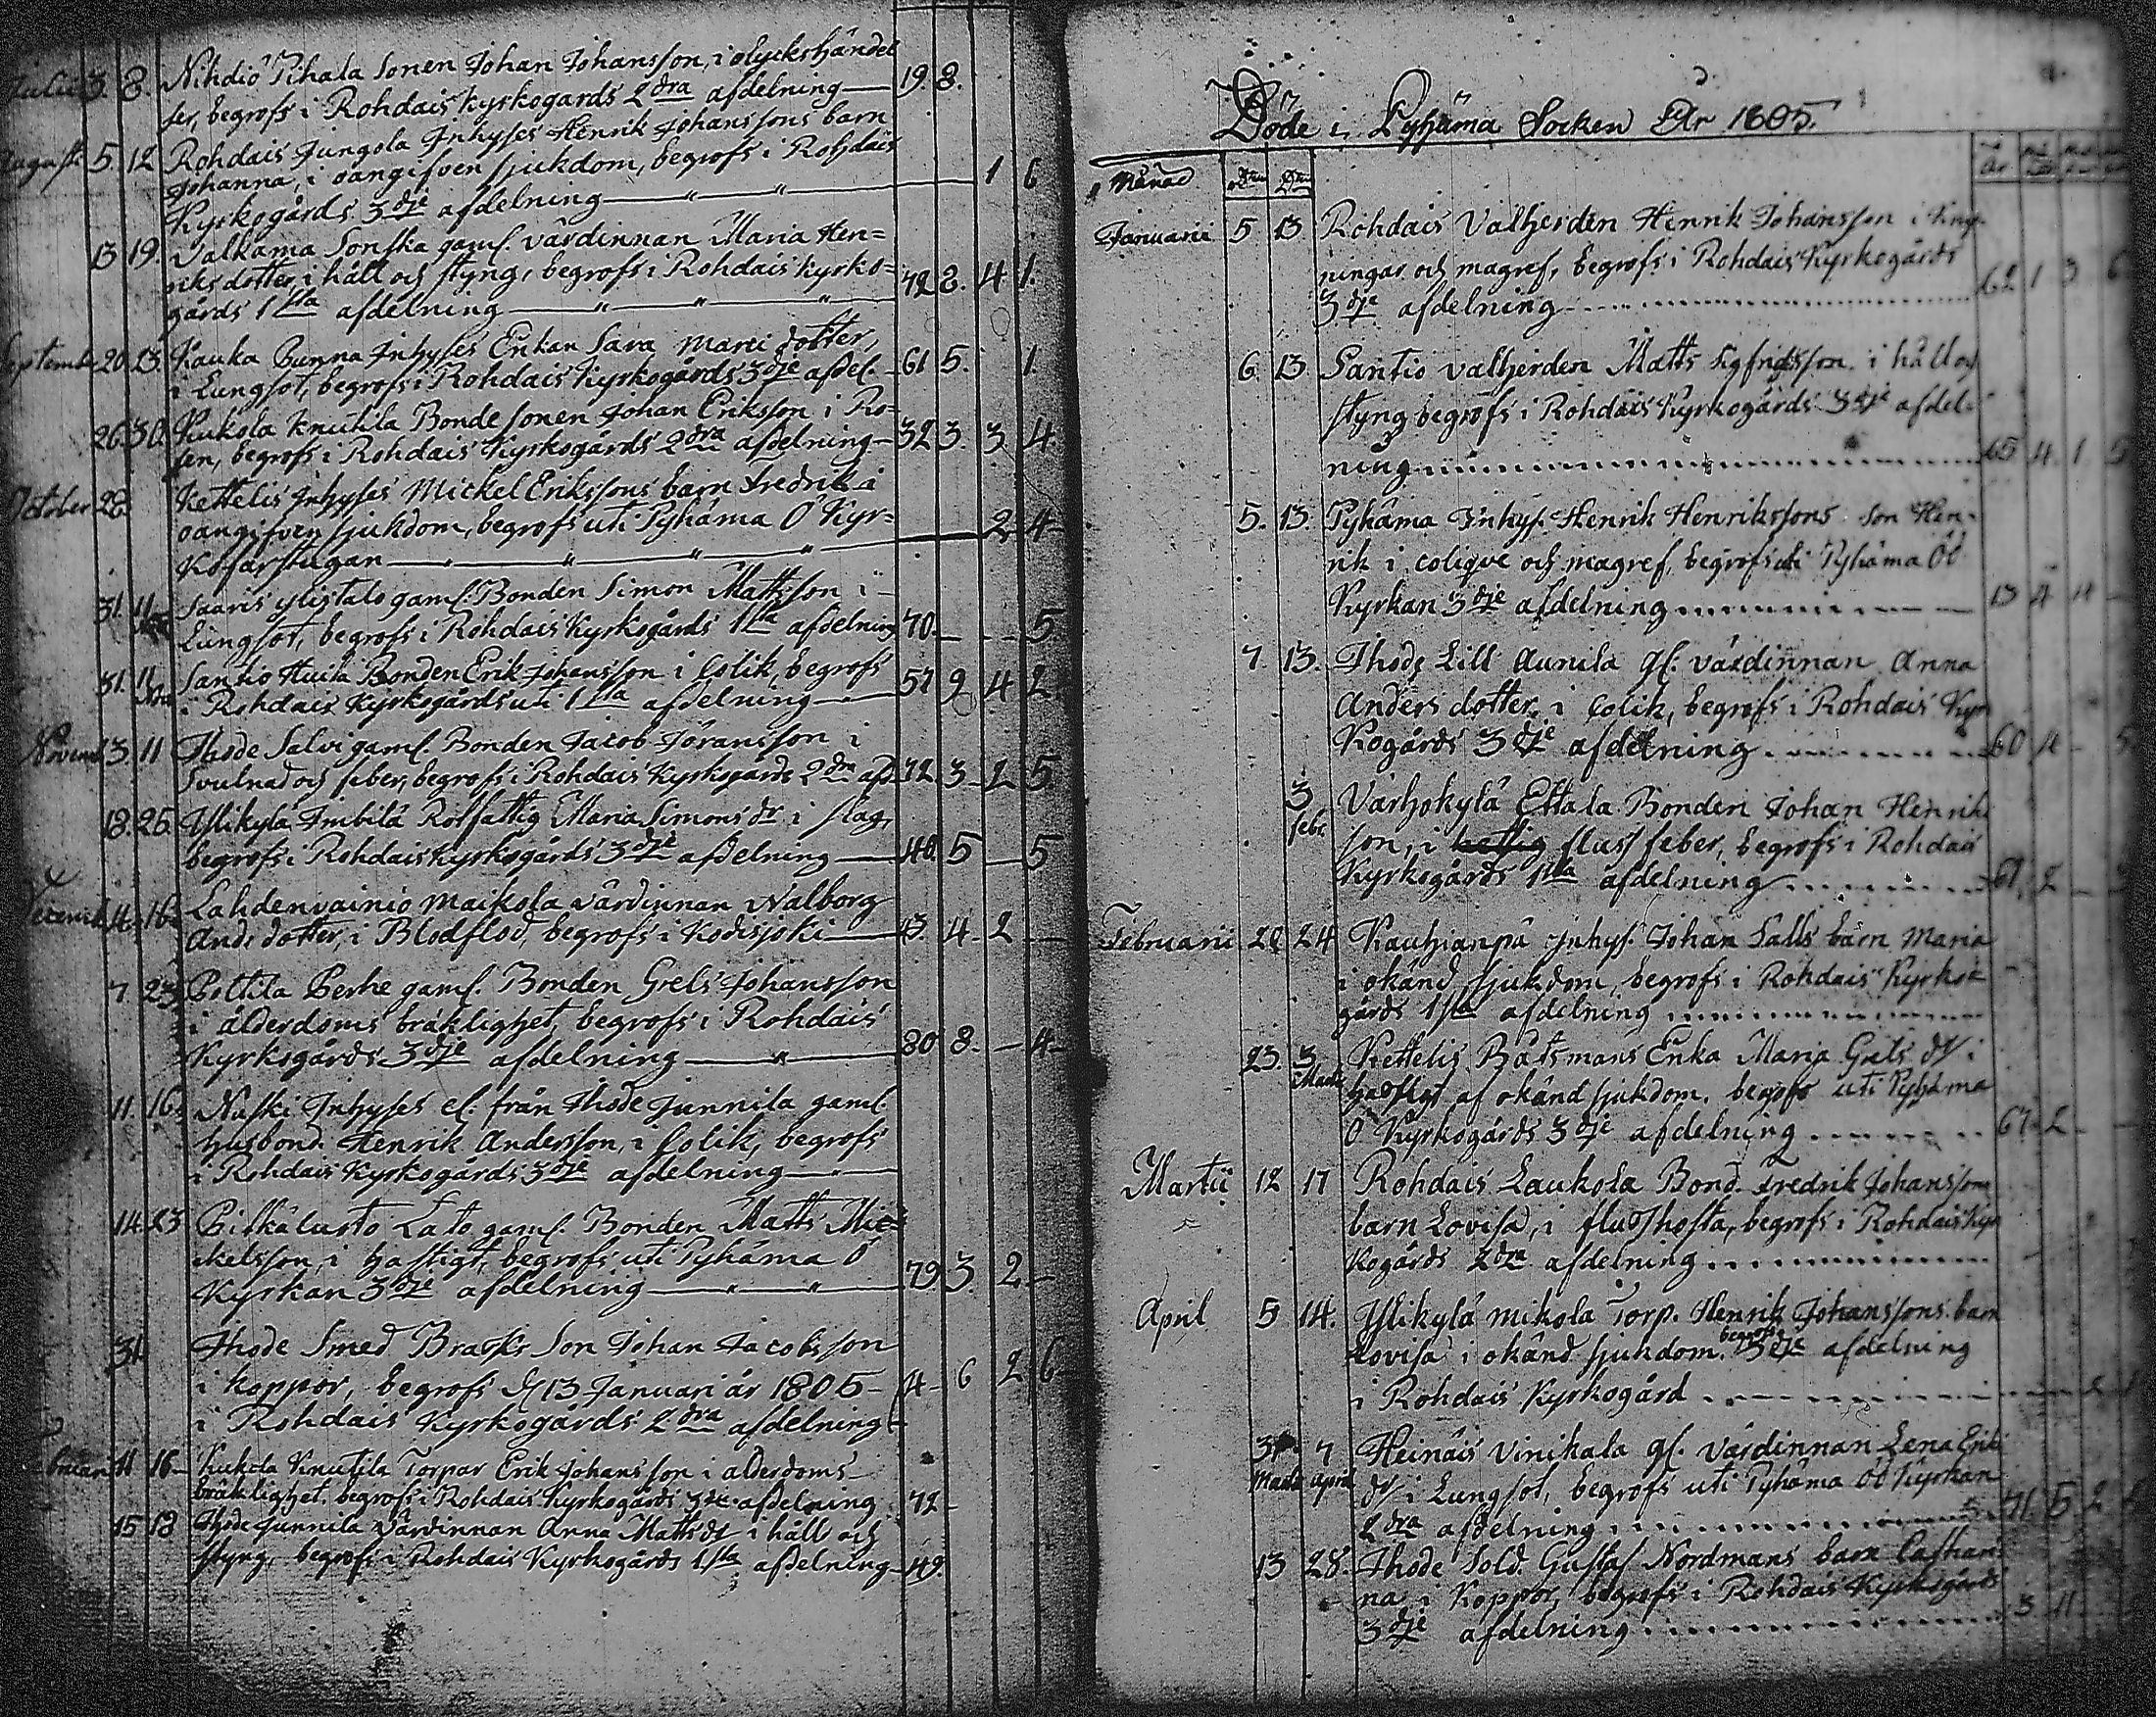 Julii 3. 8. Nihdiö Pihala Sonen Johan Johansson, i olyckshändel 19. 8.
ser, begrofs i Rohdais kyrkogårds 2dra afdelning
August. 5 12 Rohdais Jungola Inhyses Henrik Johanssons barn
Johanna, i oangifven sjukdom, begrofs i Rohdais 1 6
Kyrkogårds 3dje afdelning
13 19. Valkama Sonska gaml. värdinnan Maria Hen=
riksdotter, i håll och styng, begrofs i Rohdais kyrko= 72 8. 4 1.
gårds 1sta afdelning
Septemb 20. 23. Kauka Bunna Inhyses Enkan Sara Marci dotter,
i Lungsot, begrofs i Rohdais Kyrkogårds 3dje afdel. 61 5. 1.
26. 30. Kukola Knutila Bonde sonen Johan Eriksson i Ro=
sen, begrofs i Rohdais Kyrkogårds 2dra afdelning 32 3. 3 4
October 28. Kettelis Inhyses Mickel Erikssons barn Fredrik i
oangifven sjukdom, begrofs uti Pyhäma Ö Kyr= 2 4
koförstugan
31. 11 Saaris ylistalo gaml. Bonden Simon Mattsson i
Lungsot, begrofs i Rohdais Kyrkogårds 1sta afdelning 70. 5
31. 11 Santio Huila Bonden Erik Johansson i Colik, begrofs
i Rohdais Kyrkogårds uti 1sta afdelning 57 9 4 2
Novemb 3. 11 Ihode Salvi gaml. Bonden Jacob Jöransson i
svulnad och feber, begrofs i Rohdais Kyrkogårds 2dra afd. 72. 3 2 5
18. 25. Ylikylä Imbilä Rotfattig Maria Simonsdr i slag,
begrofs i Rohdais Kyrkogårds 3dje afdelning 40. 5 5
Decemb 4. 16. Lahdenvainio Maikola värdinnan Walborg
Ands dotter, i Blodflod, begrofs i Kodisjoki 43. 4. 2
7. 23. Pottila Perhe gaml. Bonden Grels Johansson
i ålderdoms bräklighet, begrofs i Rohdais
Kyrkogårds 3dje afdelning 80 8. 4
11. 16. Naski Inhyses el. från Ihode Junnila gaml.
husbond. Henrik Andersson, i Colik, begrofs
i Rohdais Kyrkogårds 3dje afdelning
14. 23 Pitkäluoto Lato gaml. Bonden Matts Mic=
kelsson, i hastigt, begrofs uti Pyhäma Ö
Kyrkan 3dje afdelning 79. 3. 2
31. Ihode Smed Brasks Son Johan Jacobsson
i koppor, begrofs d. 13 Januari år 1805 4 6 2 6
i Rohdais Kyrkogårds 2dra afdelning
11 16 Kukola Knutila Torpar Erik Johansson i ålderdoms
bräklighet, begrofs i Rohdais Kyrkogårds 3dje afdelning 72
15 18 Ihode Junnila värdinnan Anna Mattsdr i håll och
styng, begrofs i Rohdais Kyrkogårds 1sta afdelning 49.
Döde i Pyhäma Socken År 1805.
Månad År
Januarii 5 13 Rohdais Valhjerden Henrik Johansson i King=
ningar och magref, begrofs i Rohdais Kyrkogårds 62 1 3 6
3dje afdelning
6. 13 Santio valhjerden Matts Sigfridsson i håll och
styng begrofs i Rohdais Kyrkogårds 3dje afdel=
ning 65 4 1 5
5. 13. Pyhäma Inhys. Henrik Henrikssons son Hen=
rik i colique och magref, begrofs uti Pyhäma Öd
Kyrkan 3dje afdelning 13 4 4
7. 13. Ihode Lill Aunila gl. värdinnan Anna
Anders dotter, i Colik, begrofs i Rohdais Kyr
kogårds 3dje afdelning 60 4 5
3 febr. Varhokylä Ettala Bonden Johan Henriks
son, i hettig fluss feber, begrofs i Rohdais
Kyrkogårds 1sta afdelning 61. 2
Februarii 20 24 Kauhianpä Inhys. Johan Salls barn Maria
i okänd sjukdom, begrofs i Rohdais Kyrko
gårds 1sta afdelning
23. 3 Martii Kettelis Båtsmans Enka Maria Grels dr i
hastigt af okänd sjukdom, begrofs uti Pyhäma
Ö Kyrkogårds 3dje afdelning 67 2
Martii 12 17 Rohdais Laukola Bond. Fredrik Johanssons
barn Lovisa, i flusshosta, begrofs i Rohdais Kyr
kogårds 2dra afdelning
April 5 14. Ylikylä Mikola Torp. Henrik Johanssons barn
Lovisa i okänd sjukdom. begrofs 3dje afdelning
i Rohdais Kyrkogård
31 Martii 7 April Heinäis Vinikala gl. värdinnan Lena Eriks
dr i Lungsot, begrofs uti Pyhäma Öd Kyrkan
2dra afdelning 71. 5 2
13 28. Ihode Sold. Gustaf Nordmans barn Cathari
na i Koppor, begrofs i Rohdais Kyrkogårds
3dje afdelning 3 11